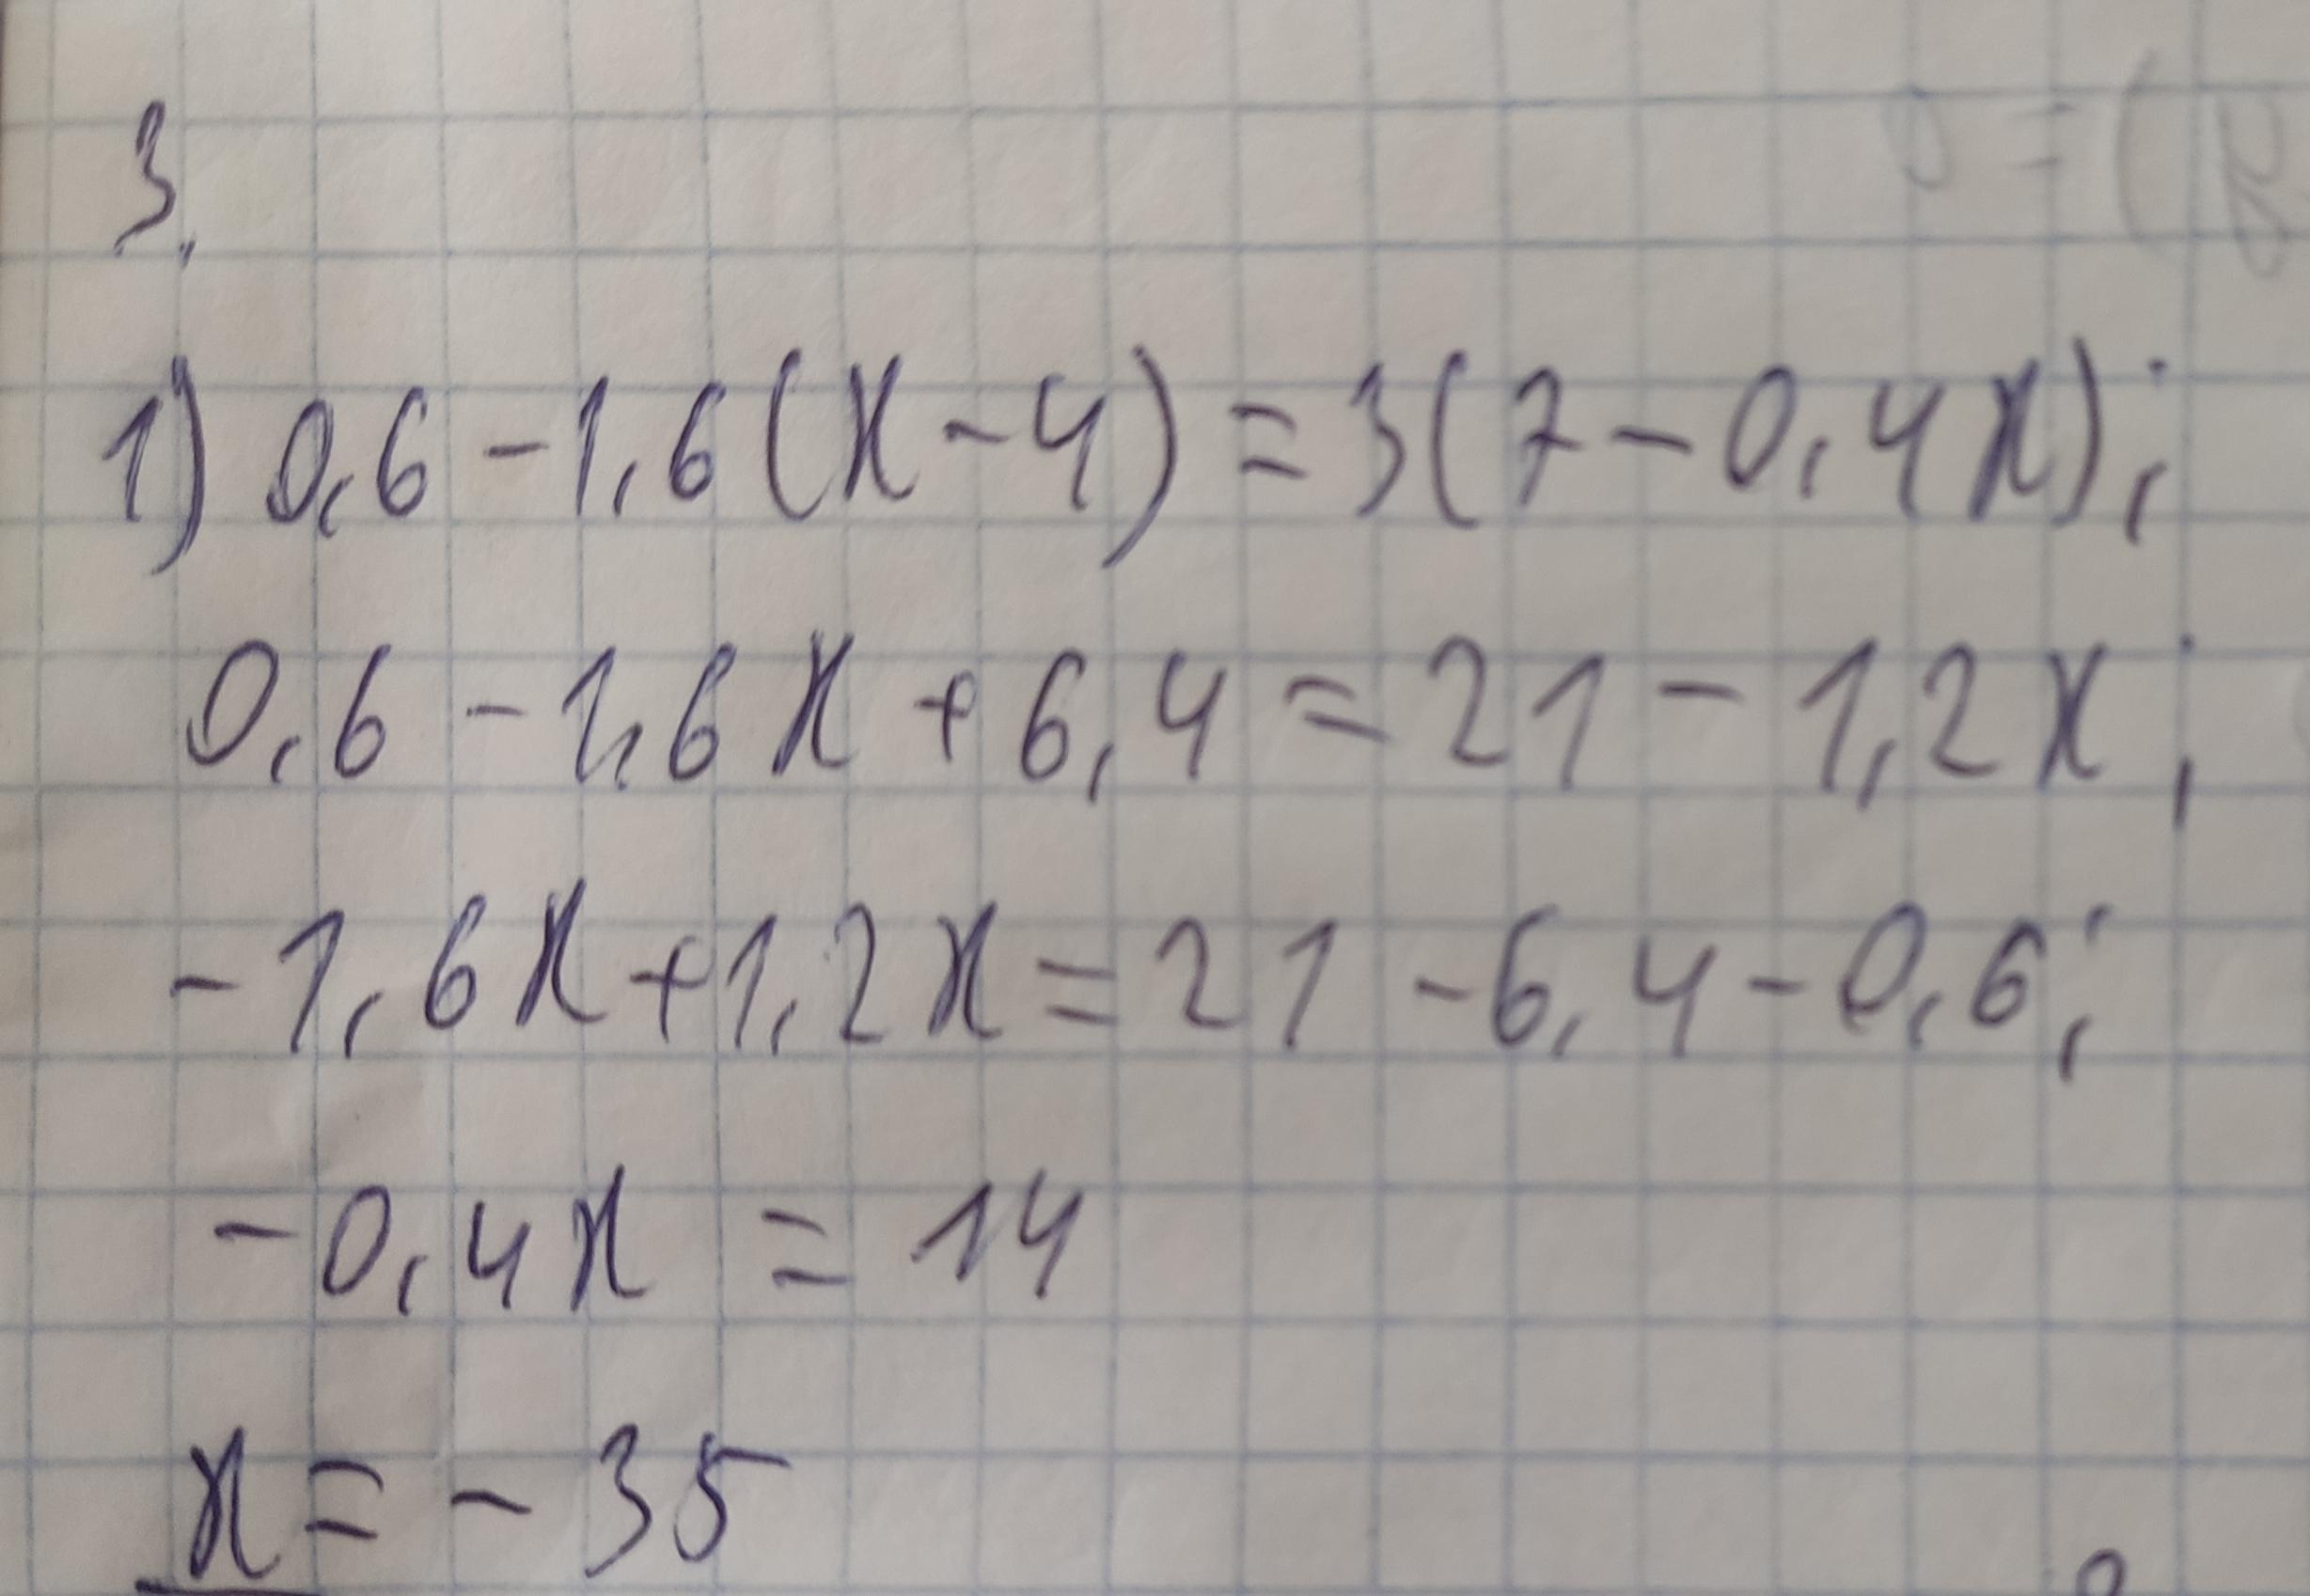 3.
1) 0,6 - 1,6(x - 4) = 3(7 - 0,4x);
0,6 - 1,6x + 6,4 = 21 - 1,2x;
-1,6x + 1,2x = 21 - 6,4 - 0,6;
-0,4x = 14
x = -35